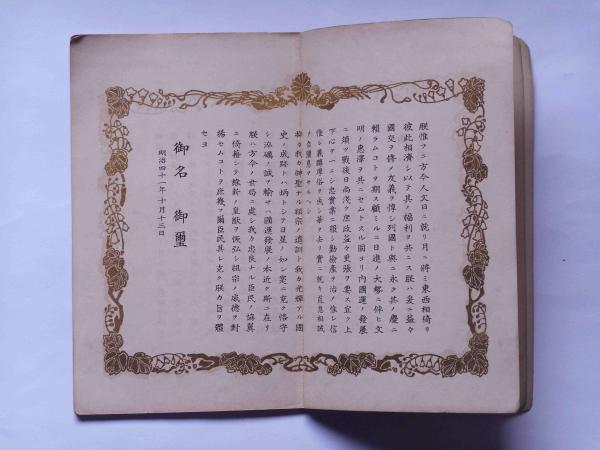 朕惟フニ方今人文日ニ就リ月ニ將ミ東西相倚リ
彼此相濟シ以テ其ノ福利ヲ共ニス朕ハ爰ニ益々
國交ヲ修メ友義ヲ惇シ列國ト與ニ永ク其ノ慶ニ
賴ラムコトヲ期ス顧ミルニ日進ノ大勢ニ伴ヒ文
明ノ惠澤ヲ共ニセムトスル固ヨリ內國運ノ發展
ニ須ツ戰後日尙淺ク庶政益々更張ヲ要ス宜ク上
下心ヲ一ニシ忠實業ニ服シ勤儉產ヲ治メ惟レ信
惟レ義醇厚俗ヲ成シ華ヲ去リ實ニ就キ荒怠相誡
メ自彊息マサルヘシ
抑々我カ神聖ナル祖宗ノ遺訓ト我カ光輝アル國
史ノ成跡トハ炳トシテ日星ノ如シ寔ニ克ク恪守
シ淬礪ノ誠ヲ輸サハ國運發展ノ本近ク斯ニ在リ
朕ハ方今ノ世局ニ處シ我カ忠良ナル臣民ノ協翼
ニ倚藉シテ維新ノ皇猷ヲ恢弘シ祖宗ノ威德ヲ對
揚セムコトヲ庶幾フ爾臣民其レ克ク朕カ旨ヲ體
セヨ
御名 御璽
明治四十一年十月十三日